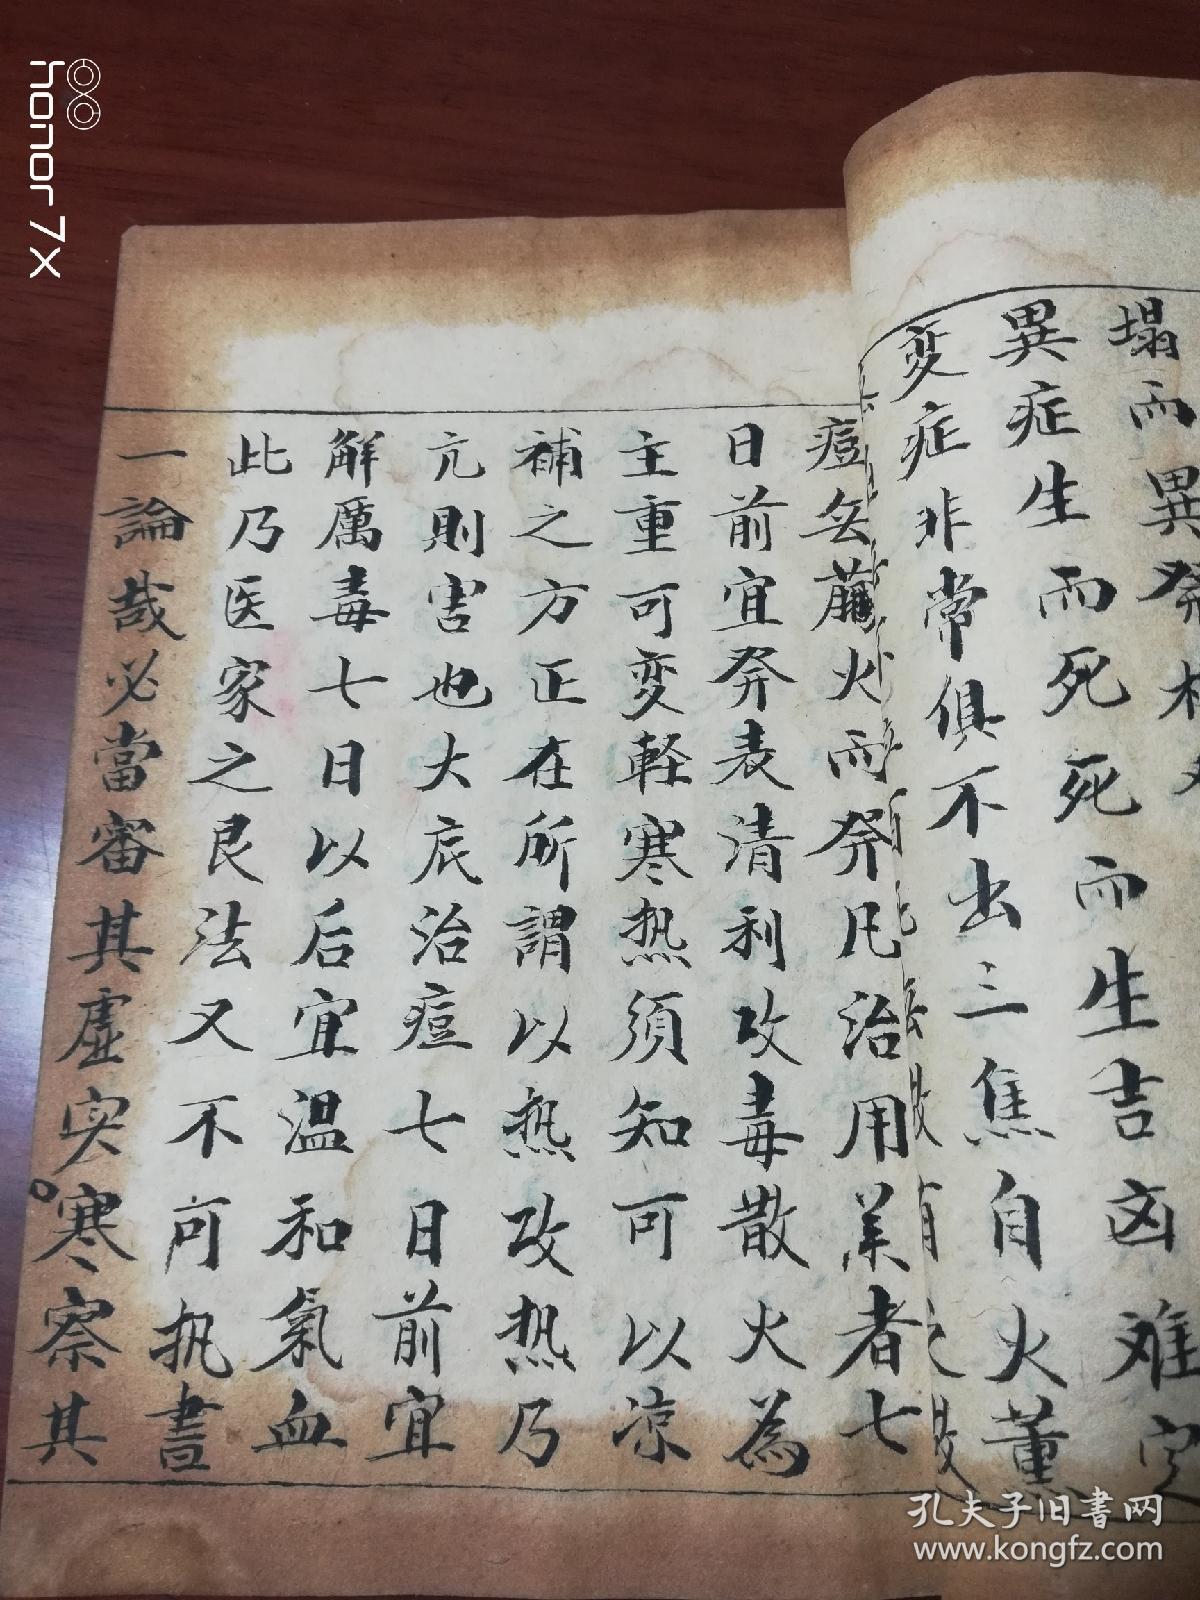 塌而異發
異症生而死死而生吉凶难定
变症非常俱不出三焦自火薰
痘矣藤火而発凡治用药者七
日前宜発表清利攻毒散火為
主重可变軽寒热須知可以凉
補之方正在所謂以热攻热乃
亢則害也大底治痘七日前宜
解厲毒七日以后宜温和氣血
此乃医家之良法又不可执書
一論哉必當審其虚实寒察其
honor 7X
孔夫子旧書网
www.kongfz.com